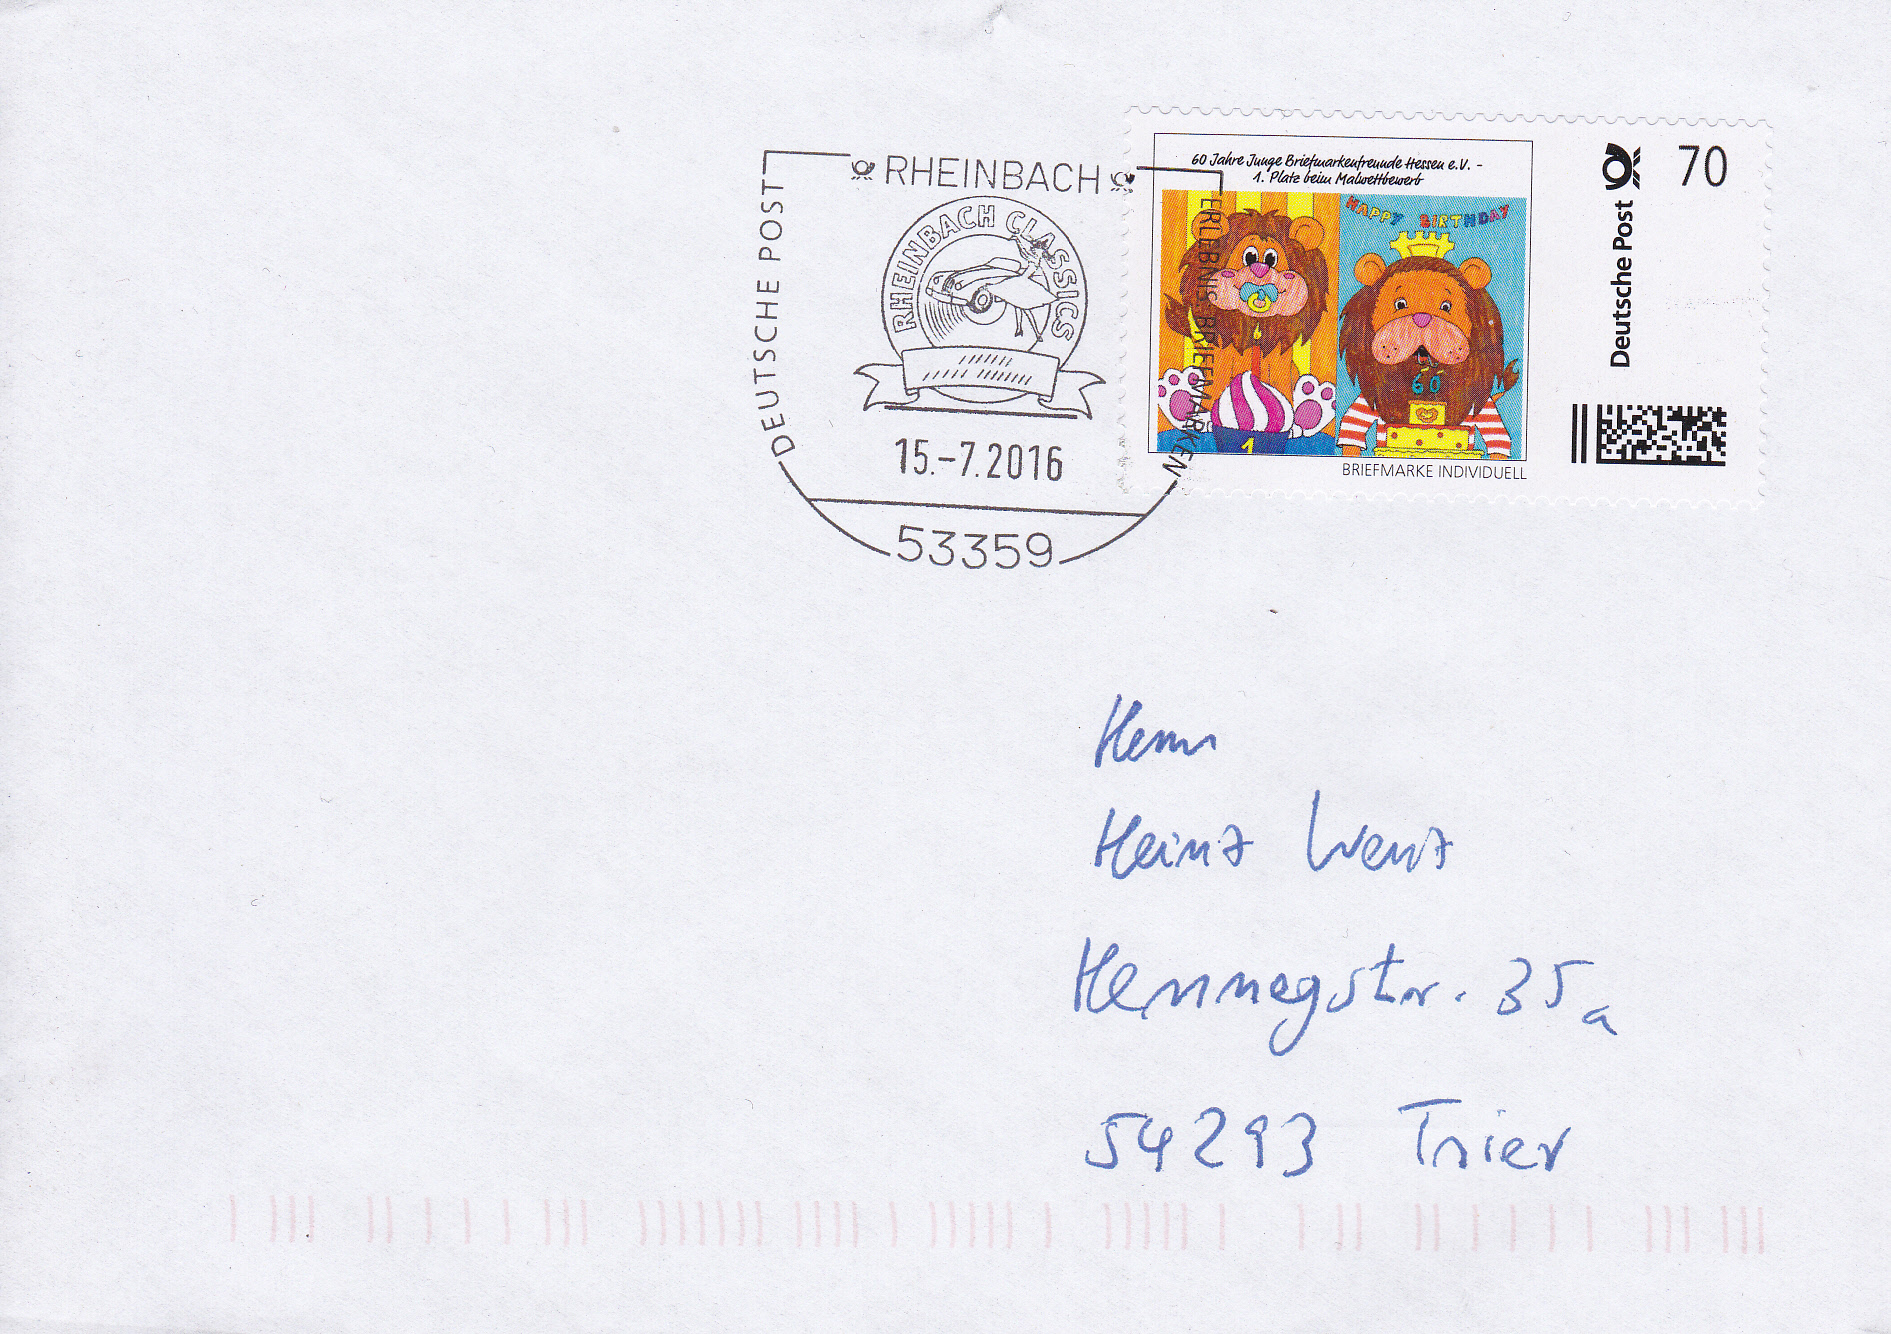 RHEINBACH
DEUTSCHE POST
ERLEBNIS: BRIEFMARKEN
RHEINBACH CLASSICS
15.-7.2016
53359
60 Jahre Junge Briefmarkenfreunde Hessen e.V. -
1. Platz beim Malwettbewerb
HAPPY BIRTHDAY
60
1
BRIEFMARKE INDIVIDUELL
Deutsche Post
70
Herrn
Heinz Wenz
Hennegstr. 35a
54293 Trier